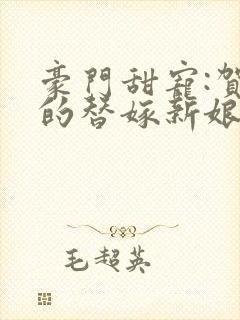 豪門甜寵:賀
的替嫁新娘
毛超英